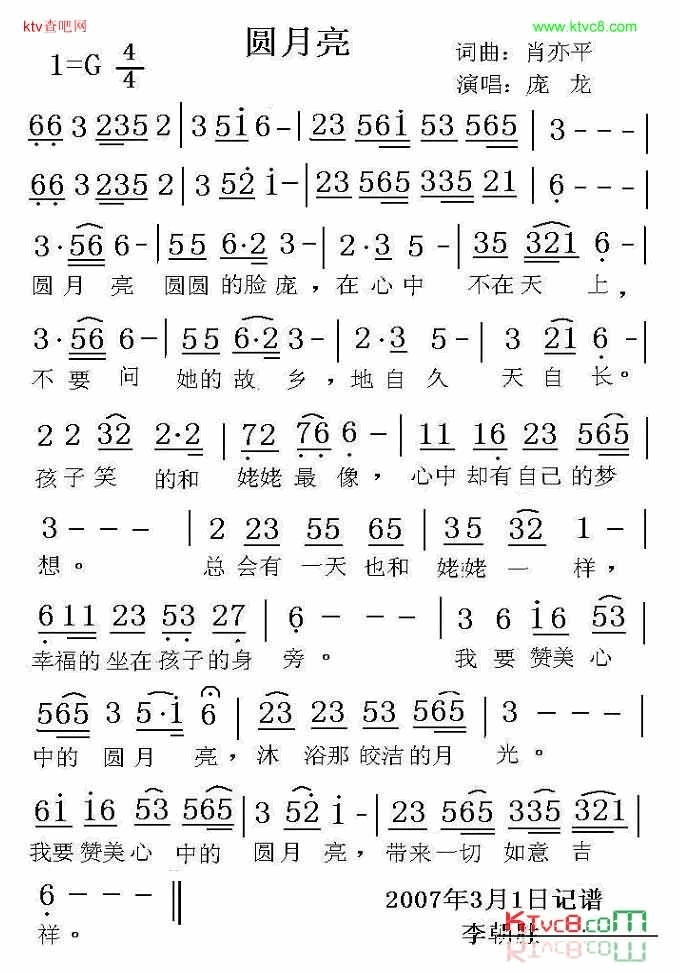 ktv查吧网
www.ktvc8.com
圆月亮
1=G 4/4
词曲：肖亦平
演唱：庞 龙
66 3 235 2 | 3 5i 6- | 23 56i 53 565 | 3--- |
66 3 235 2 | 3 52 i- | 23 565 335 21 | 6-- |
3·56 6- | 55 6·2 3- | 2·3 5- | 35 321 6- |
圆月亮 圆圆的脸庞，在心中 不在天上，
3·56 6- | 55 6·2 3- | 2·3 5- | 3 21 6- |
不要问 她的故乡，地自久 天自长。
2 2 32 2·2 | 72 76 6- | 11 16 23 565 |
孩子笑 的和 姥姥最像，心中却有自己的梦
3 - - - | 2 23 55 65 | 35 32 1- |
想。 总会有一天也和姥姥一样，
611 23 53 27 | 6--- | 3 6 i6 53 |
幸福的坐在孩子的身旁。 我要赞美心
565 3 5·i 6 | 23 23 53 565 | 3--- |
中的圆月亮，沐浴那皎洁的月光。
6i i6 53 565 | 3 52 i- | 23 565 335 321 |
我要赞美心 中的 圆月亮，带来一切 如意吉
6-- ‖
祥。
2007年3月1日记谱
KTvc8.com